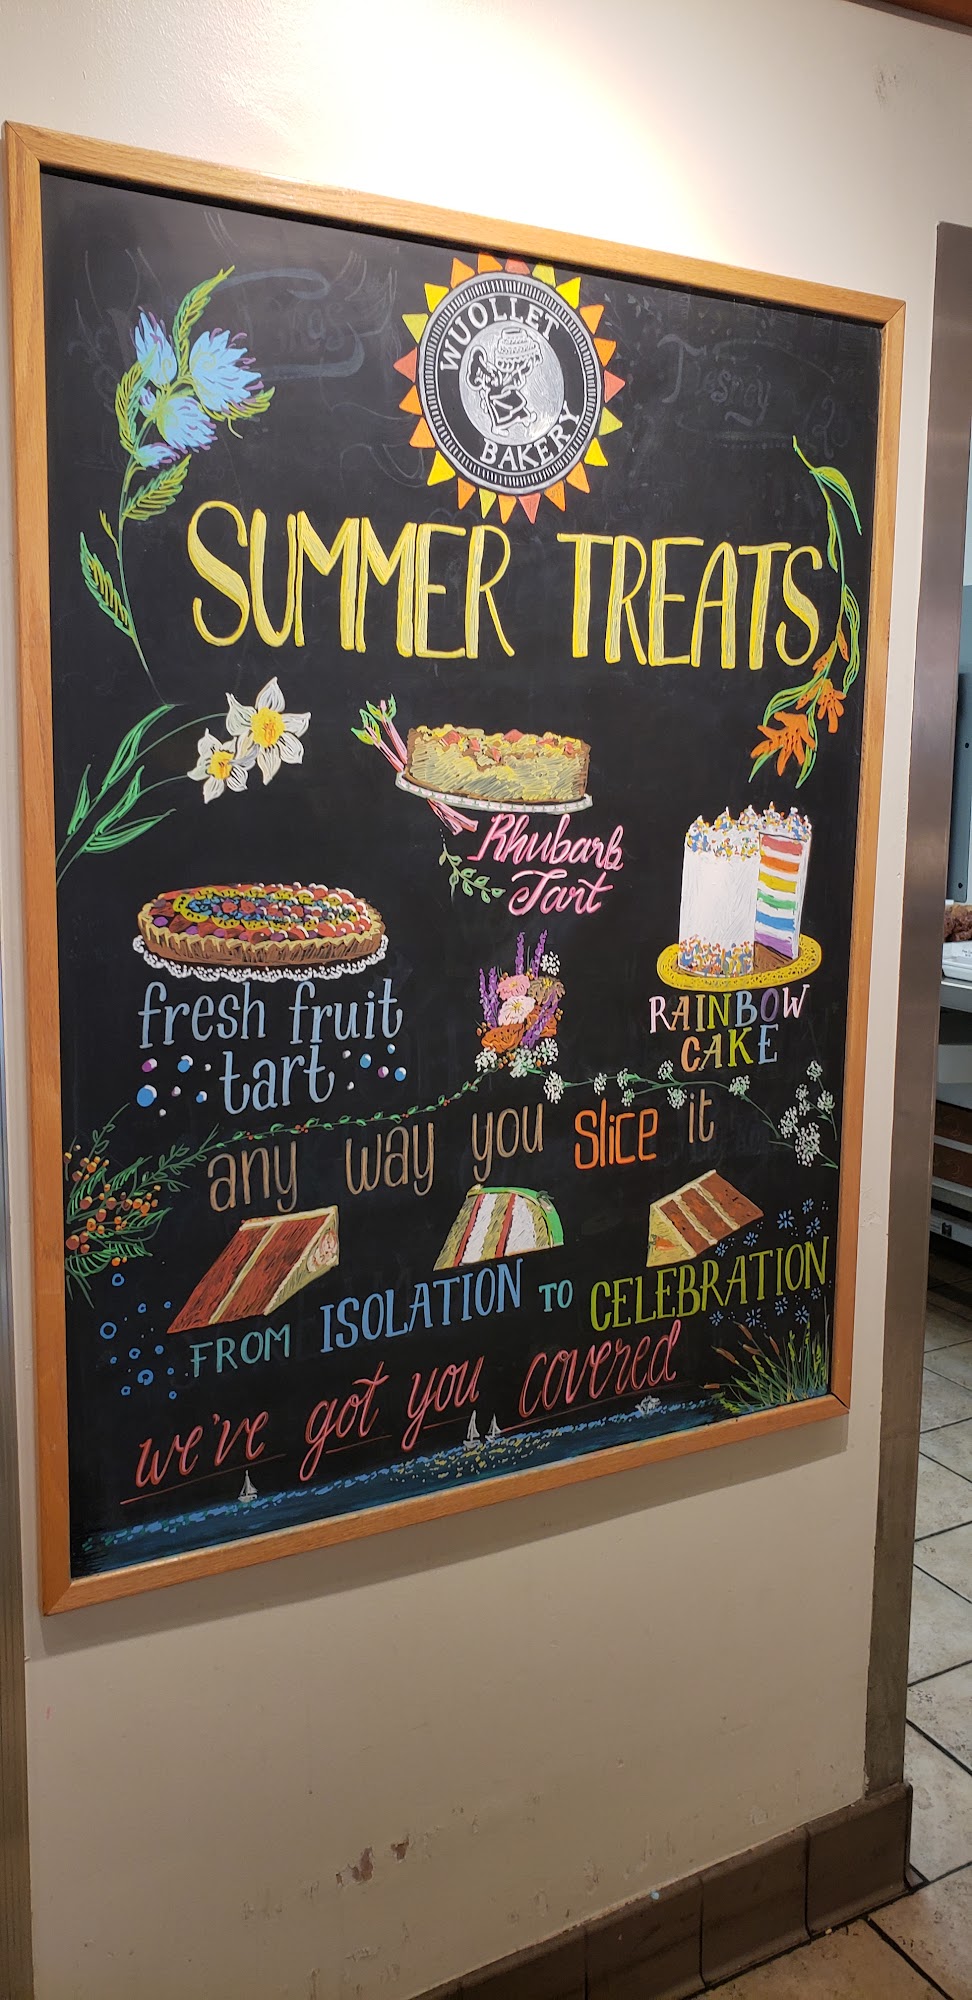 WUOLLET
BAKERY
SUMMER TREATS
Rhubarb
Tart
fresh fruit
tart
RAINBOW
CAKE
any way you slice it
FROM ISOLATION TO CELEBRATION
we've got you covered